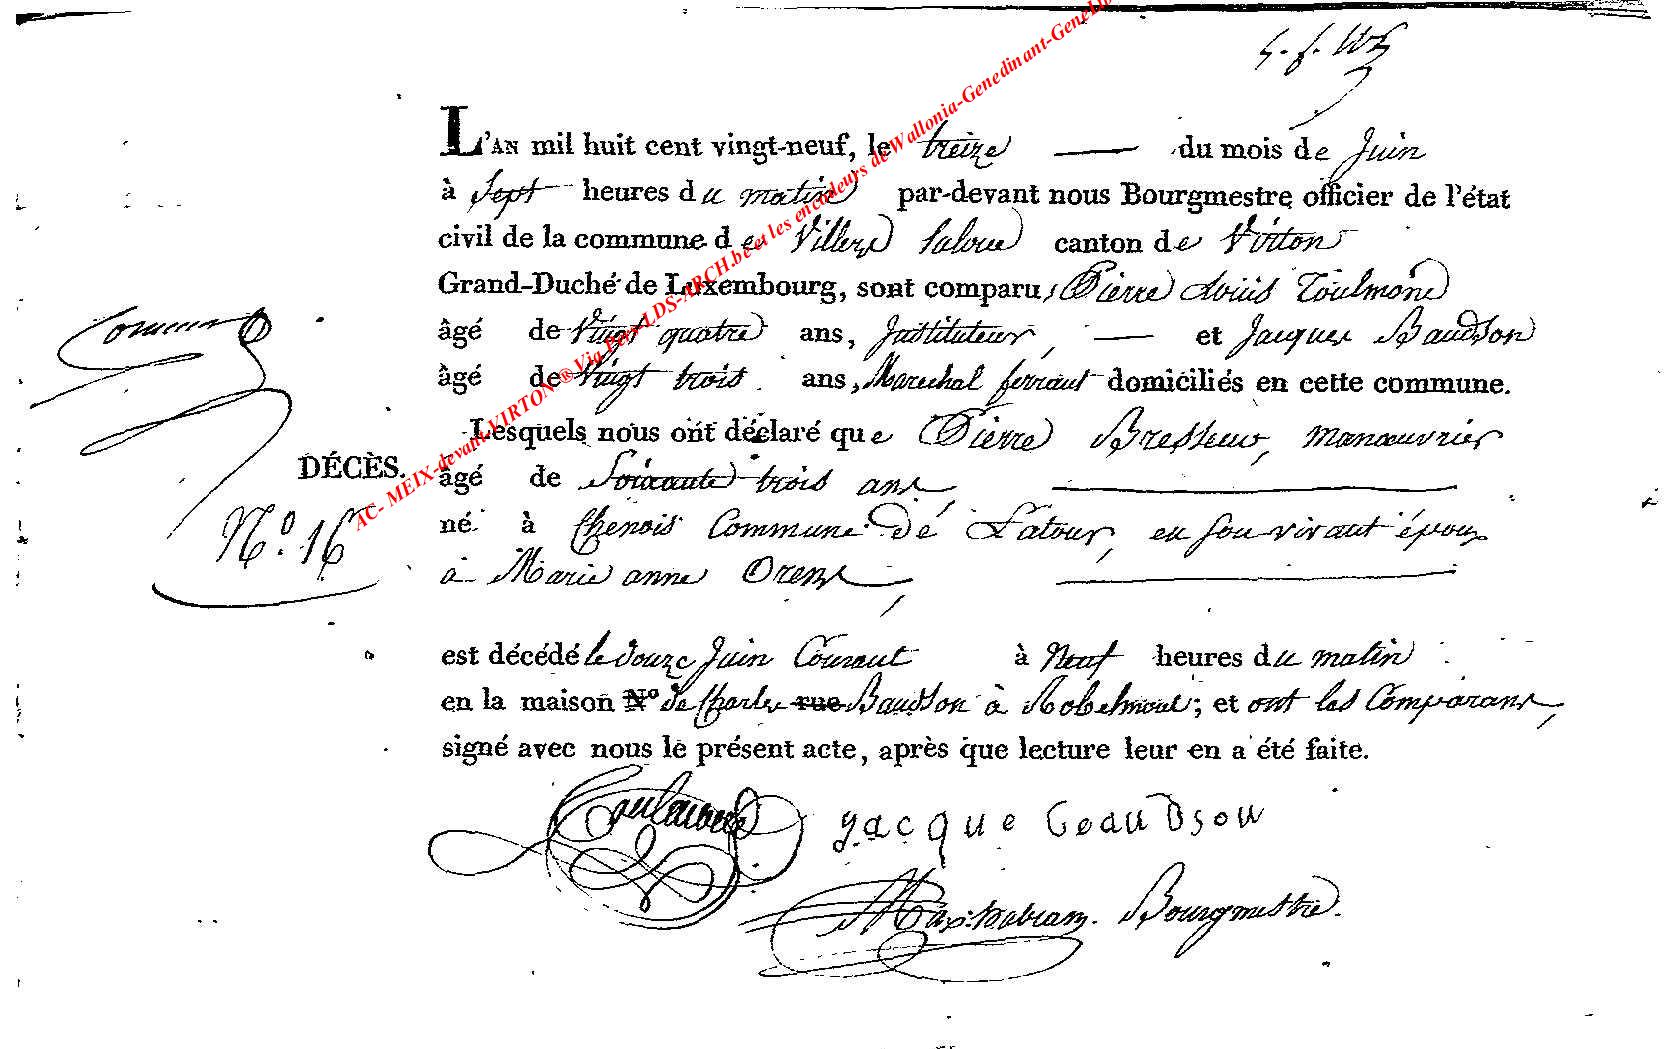 L'AN mil huit cent vingt-neuf, le treize du mois de Juin
à Sept heures du matin par-devant nous Bourgmestre officier de l'état
civil de la commune de Villers laloue canton de Virton
Grand-Duché de Luxembourg, sont comparus Pierre Louis Toulmonde
âgé de Vingt quatre ans, Instituteur, et Jacques Baudson
âgé de Vingt trois ans, Marechal ferrant domiciliés en cette commune.
Lesquels nous ont déclaré que Pierre manœuvrier
DÉCÈS.
âgé de Soixante trois ans,
né à Chenois Commune de Latour, en son vivant époux
à Marie anne
N.º 16
est décédé le douze Juin Courant à Neuf heures du matin
en la maison Nº de Charles rue Baudson à Robelmont; et ont les Comparans,
signé avec nous le présent acte, après que lecture leur en a été faite.
Jacque Beaudson
Bourgmestre.
AC- MEIX-devant-VIRTON ® Via Perx-LDS-ARCH.be et les encodeurs de Wallonia-Genedinant-Geneb